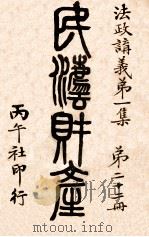 法政講義第一集　第二十二冊
民法財產
丙午社印行